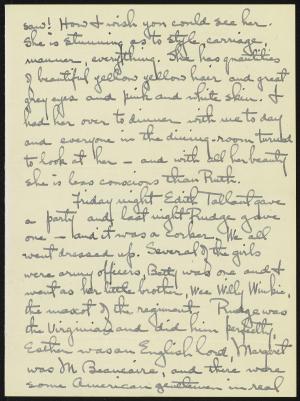 saw! How I wish you could see her.
She is stunning as to style, carriage,
manner, everything. She has quantities
of beautiful yellow yellow hair and great
grey eyes and pink and white skin. I
had her over to dinner with me to day
and everyone in the dining-room turned
to look at her – and with all her beauty
she is less conscious than Ruth.
Friday night Edith Tallant gave
a party and last night Rudge gave
one – and it was a corker. We all
went dressed up. Several of the girls
were army officers, Betty was one and I
went as her little brother, Wee Willy Winkie,
the mascot of the regiment. Rudge was
the Virginian and did him perfectly,
Esther was an English lord, Margaret
was M. Beaucaire, and there were
some American gentlemen in real